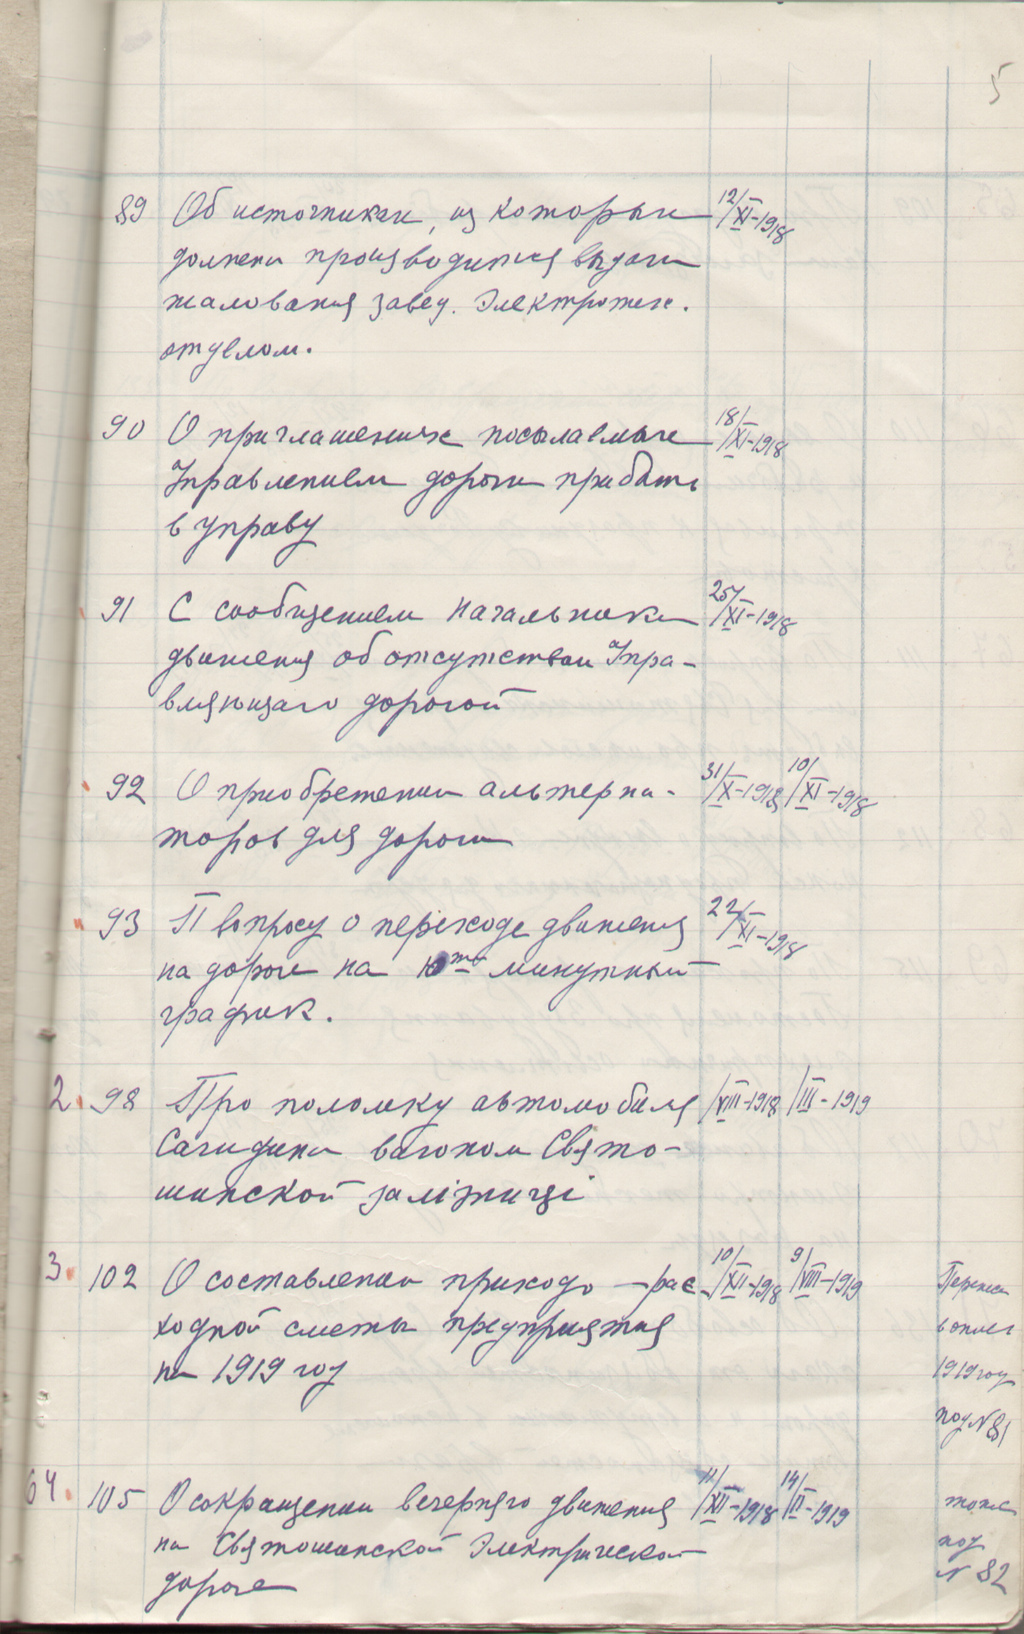 5
89 Об источниках, из которых 12/XI-1918
должны производится выдачи
жалования завед. Электротех.
отделом.
90 О приглашениях посылаемых 18/XI-1918
Управлением дороги прибыть
в управу
91 С сообщением начальника 25/XI-1918
движения об отсутствии Упра-
вляющаго дорогой
92 О приобретении альтерна- 31/X-1918 10/XI-1918
торов для дороги
93 П вопросу о переходе движения 22/XI-1918
на дороге на 10ти минутный
график.
2. 98 Про поломку автомобиля /VIII-1918 /III-1919
вагоном Свято-
шинской залізниці
3. 102 О составлении приходо-рас- 10/XII-1918 9/VIII-1919
ходной сметы предприятия
на 1919 год
в опись
1919 год
под №81
64. 105 О сокращении вечерняго движения 11/XII-1918 14/II-1919
на Святошинской Электрической
дороге
тоже
под
№ 82